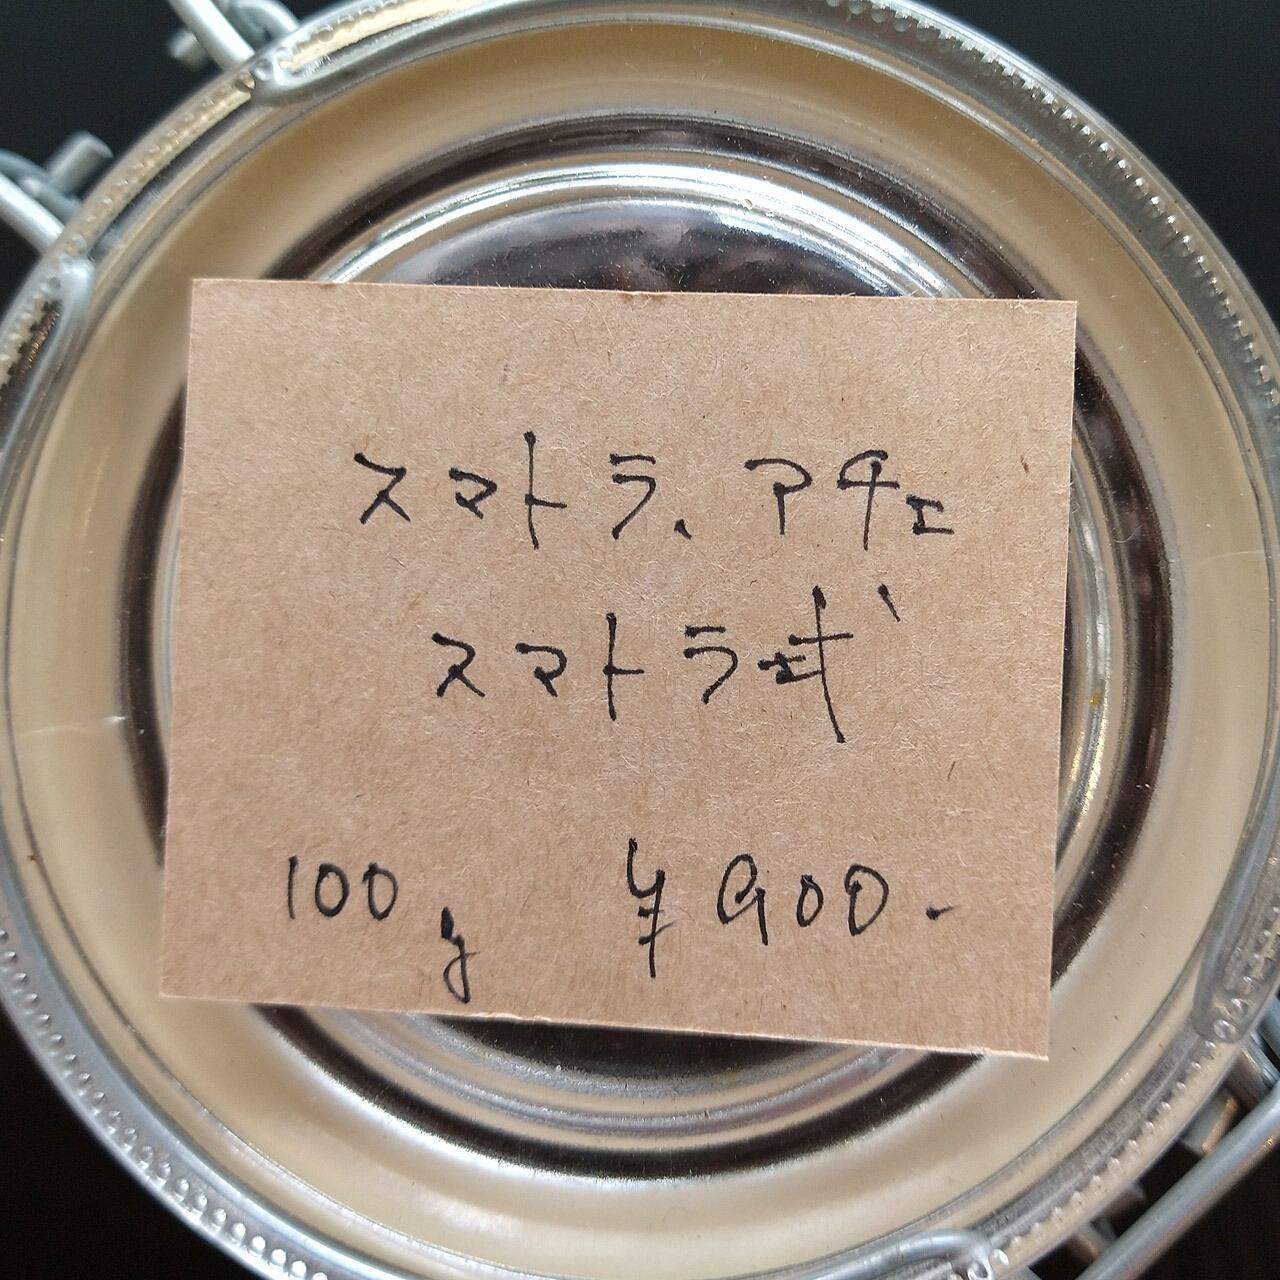 スマトラ、アチェ
スマトラ式
100g ¥900.-